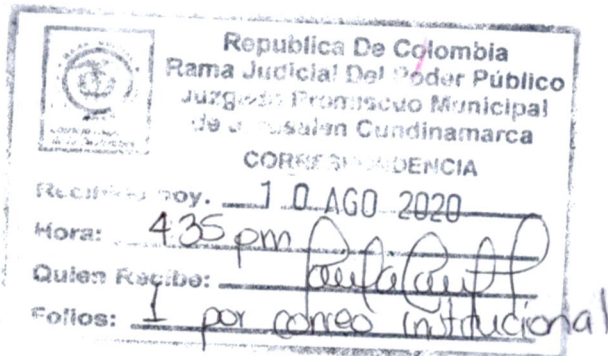 Republica De Colombia
Rama Judicial Del Poder Público
Juzgado Promiscuo Municipal
de Jerusalen Cundinamarca
CORRESPONDENCIA
Recibido hoy. 10 AGO 2020
Hora: 435 pm
Quien Recibe:
Folios: 1 por correo institucional